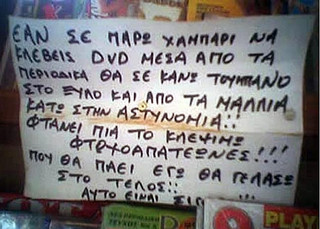 ΕΑΝ ΣΕ ΠΑΡΩ ΧΑΜΠΑΡΙ ΝΑ
ΚΛΕΒΕΙΣ DVD ΜΕΣΑ ΑΠΟ ΤΑ
ΠΕΡΙΟΔΙΚΑ ΘΑ ΣΕ ΚΑΝΩ ΤΟΥΜΠΑΝΟ
ΣΤΟ ΞΥΛΟ ΚΑΙ ΑΠΟ ΤΑ ΜΑΛΛΙΑ
ΚΑΤΩ ΣΤΗΝ ΑΣΤΥΝΟΜΙΑ!!
ΦΤΑΝΕΙ ΠΙΑ ΤΟ ΚΛΕΨΙΜΟ
ΦΤΩΧΟΑΠΑΤΕΩΝΕΣ!!!
ΠΟΥ ΘΑ ΠΑΕΙ ΕΓΩ ΘΑ ΓΕΛΑΣΩ
ΣΤΟ ΤΕΛΟΣ!!
ΑΥΤΟ ΕΙΝΑΙ
PLAY